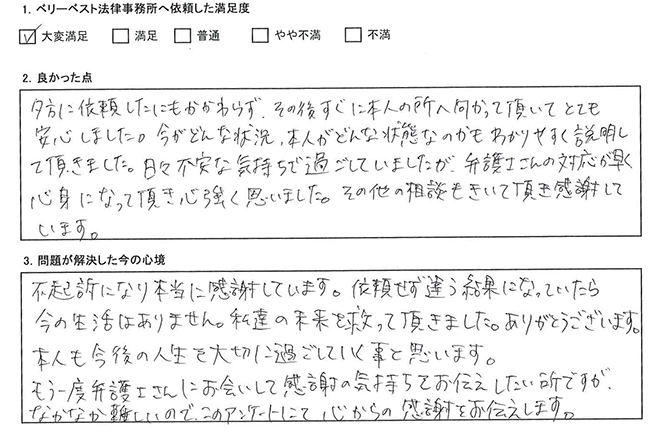 1. ベリーベスト法律事務所へ依頼した満足度
☑ 大変満足 □ 満足 □ 普通 □ やや不満 □ 不満
2. 良かった点
夕方に依頼したにもかかわらず、その後すぐに本人の所へ向かって頂いてとても
安心しました。今がどんな状況、本人がどんな状態なのかもわかりやすく説明し
て頂きました。日々不安な気持ちで過ごしていましたが、弁護士さんの対応が早く
心身になって頂き心強く思いました。その他の相談もきいて頂き感謝して
います。
3. 問題が解決した今の心境
不起訴になり本当に感謝しています。依頼せず違う結果になっていたら
今の生活はありません。私達の未来を救って頂きました。ありがとうございます。
本人も今後の人生を大切に過ごしていく事と思います。
もう一度弁護士さんにお会いして感謝の気持ちをお伝えしたい所ですが、
なかなか難しいので、このアンケートにて心からの感謝をお伝えします。